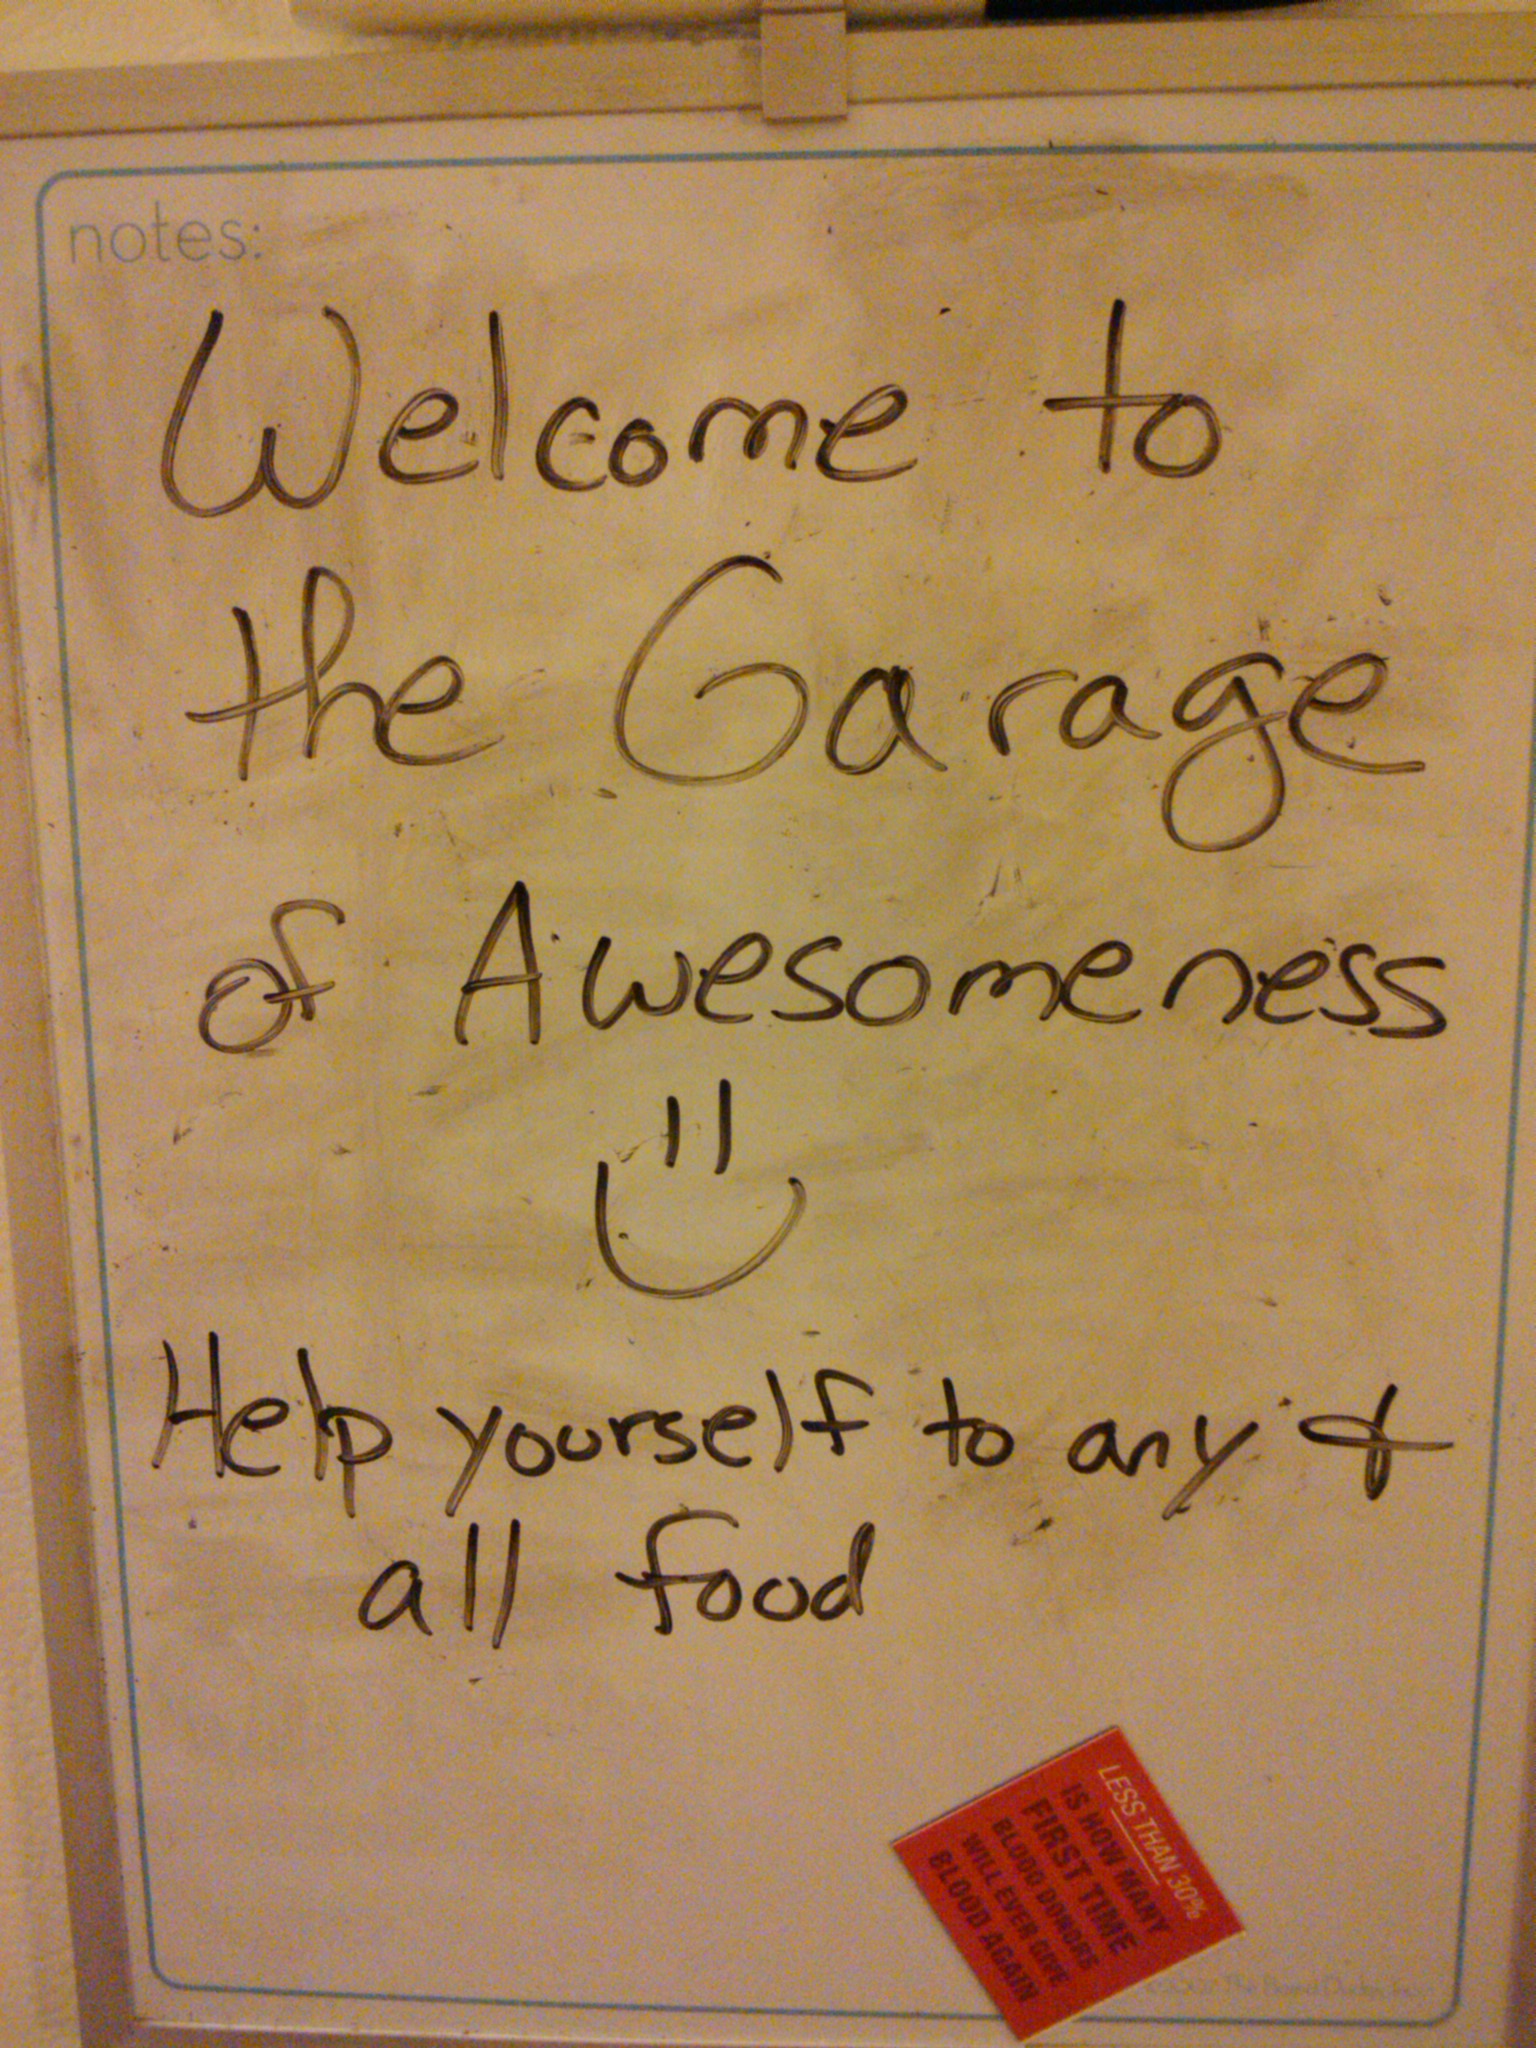 notes:
Welcome to
the Garage
of Awesomeness
Help yourself to any &
all food
LESS THAN 30%
IS HOW MANY
FIRST TIME
BLOOD DONORS
WILL EVER GIVE
BLOOD AGAIN
The Board Dudes, Inc.